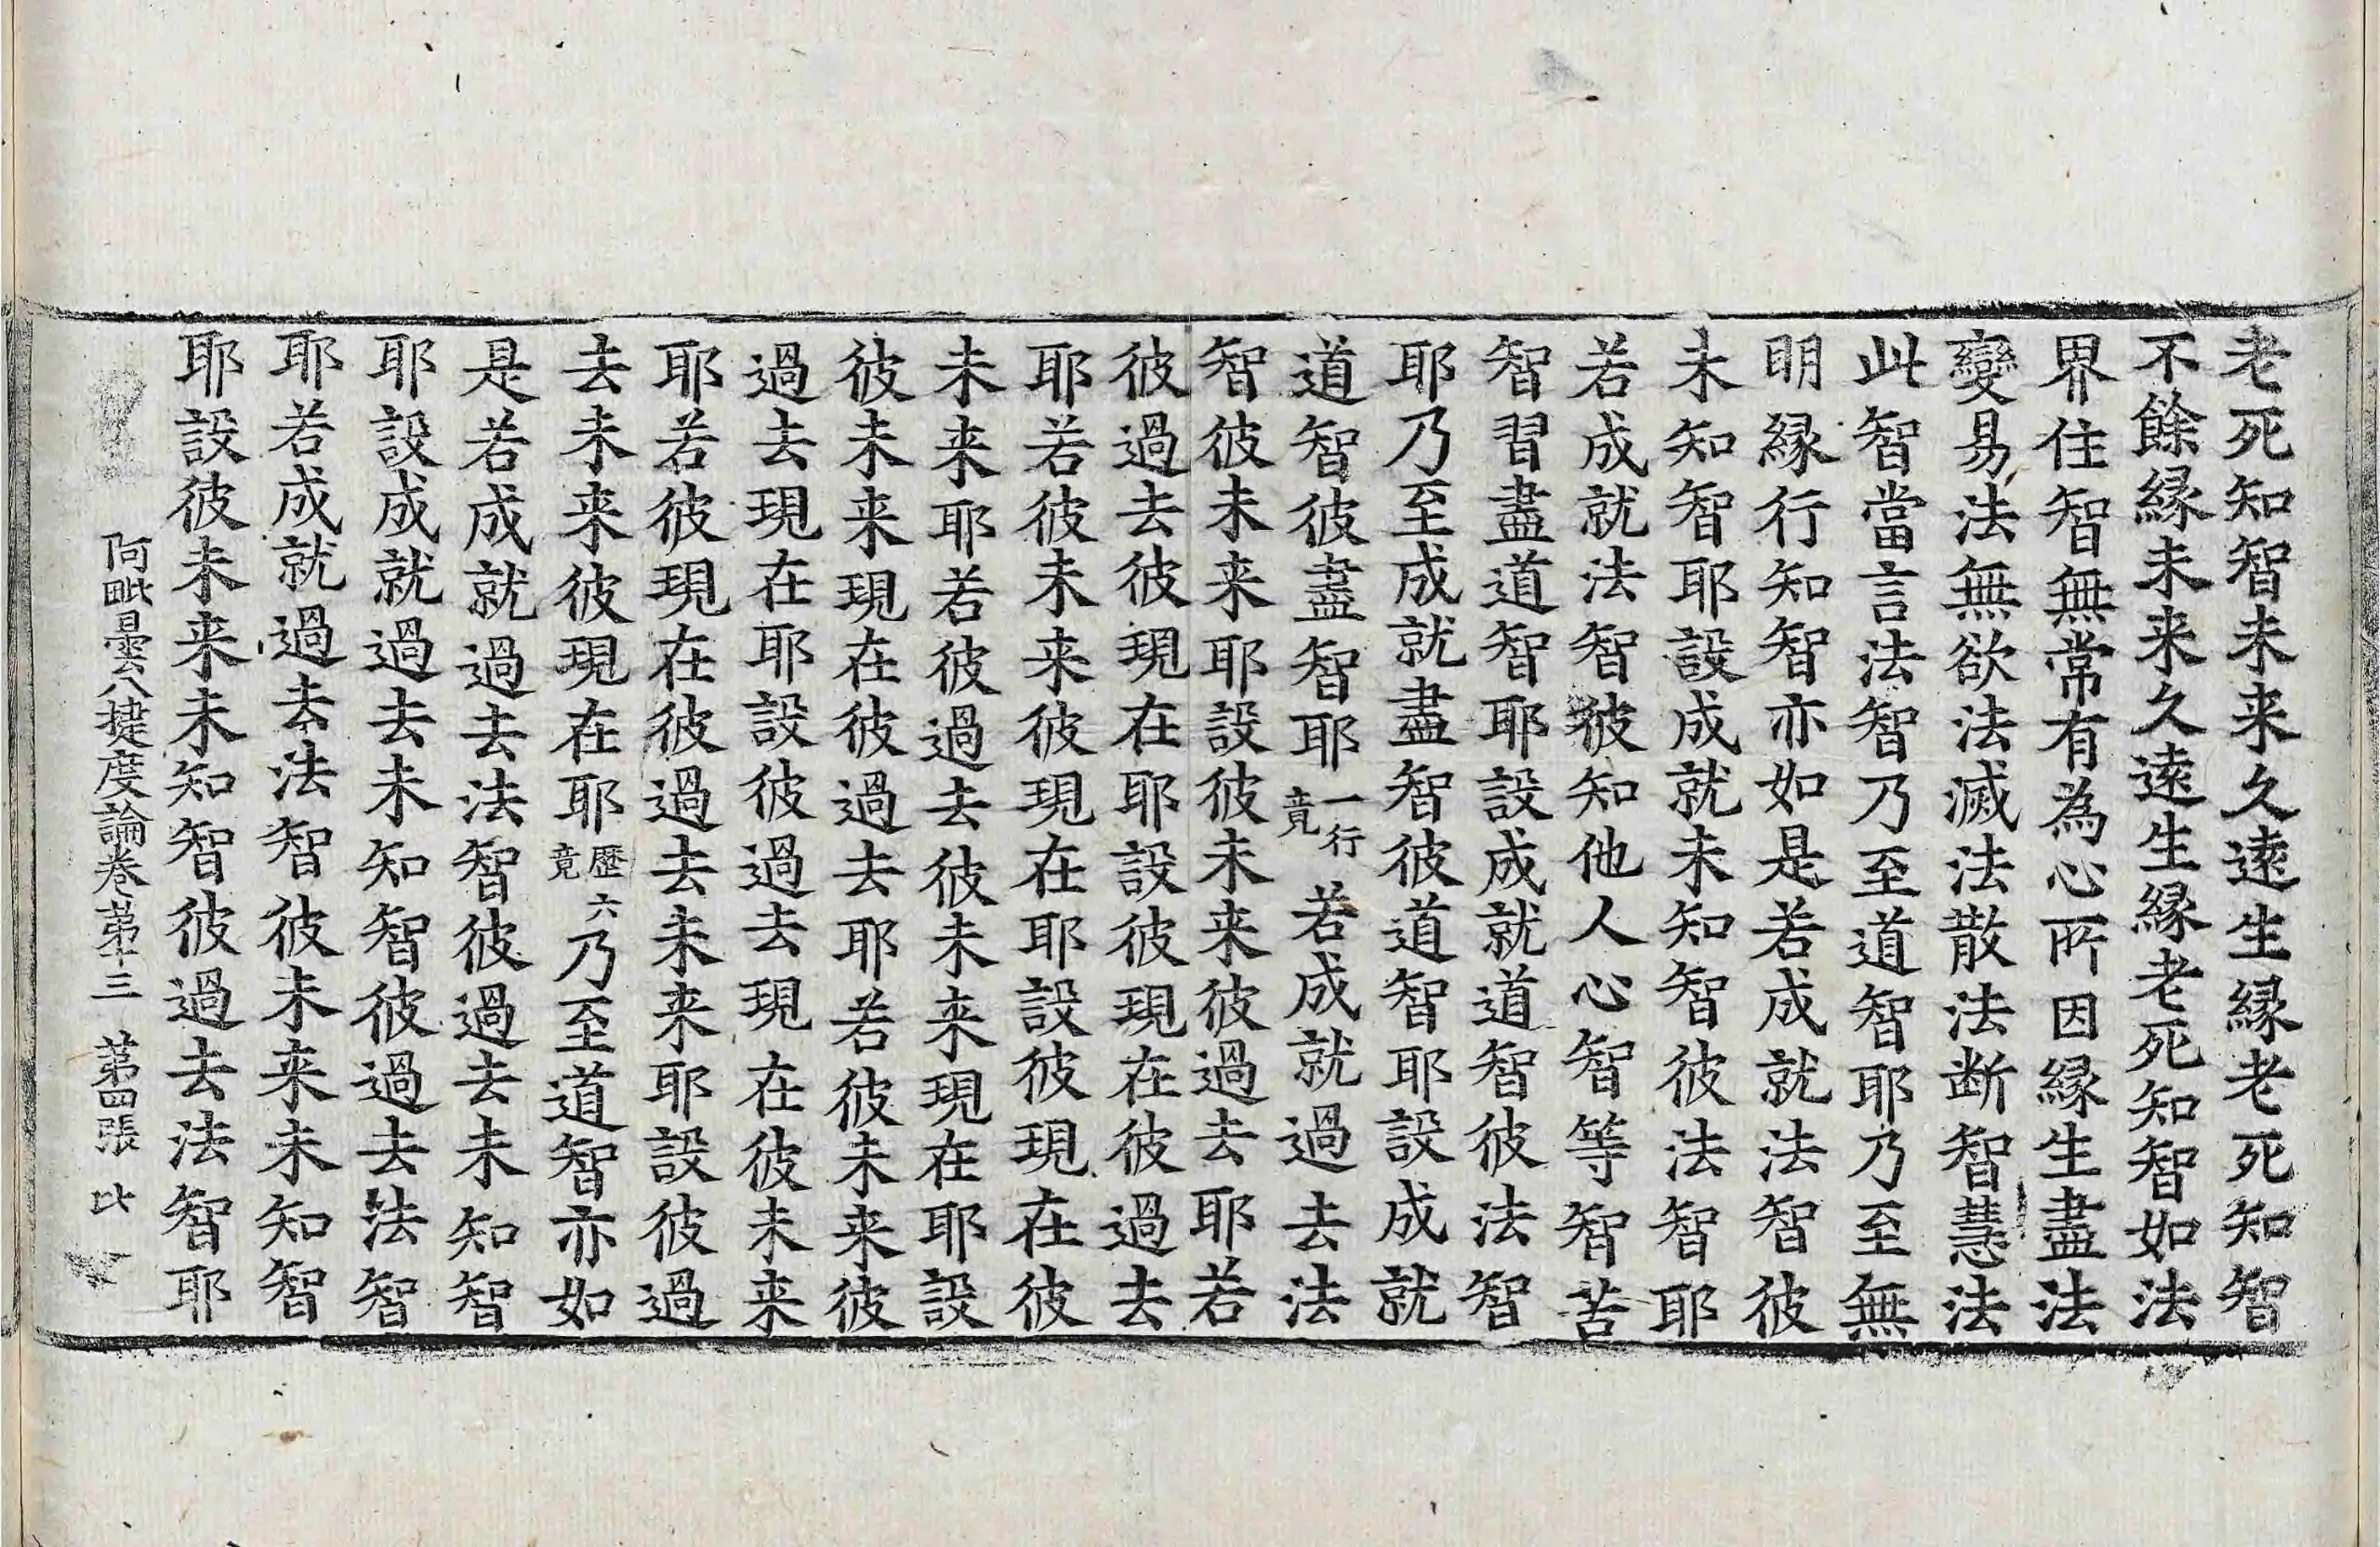 老死知智未来久遠生縁老死知智
不餘縁未来久遠生縁老死知智如法
界住智無常有為心所因縁生盡法
變易法無欲法滅法散法断智慧法
此智當言法智乃至道智耶乃至無
明縁行知智亦如是若成就法智彼
未知智耶設成就未知智彼法智耶
若成就法智彼知他人心智等智苦
智習盡道智耶設成就道智彼法智
耶乃至成就盡智彼道智耶設成就
道智彼盡智耶一行竟若成就過去法
智彼未来耶設彼未来彼過去耶若
彼過去彼現在耶設彼現在彼過去
耶若彼未来彼現在耶設彼現在彼
未来耶若彼過去彼未来現在耶設
彼未来現在彼過去耶若彼未来彼
過去現在耶設彼過去現在彼未来
耶若彼現在彼過去未来耶設彼過
去未来彼現在耶歷六竟乃至道智亦如
是若成就過去法智彼過去未知智
耶設成就過去未知智彼過去法智
耶若成就過去法智彼未来未知智
耶設彼未来未知智彼過去法智耶
阿毗曇八揵度論卷第十三 第四張 比